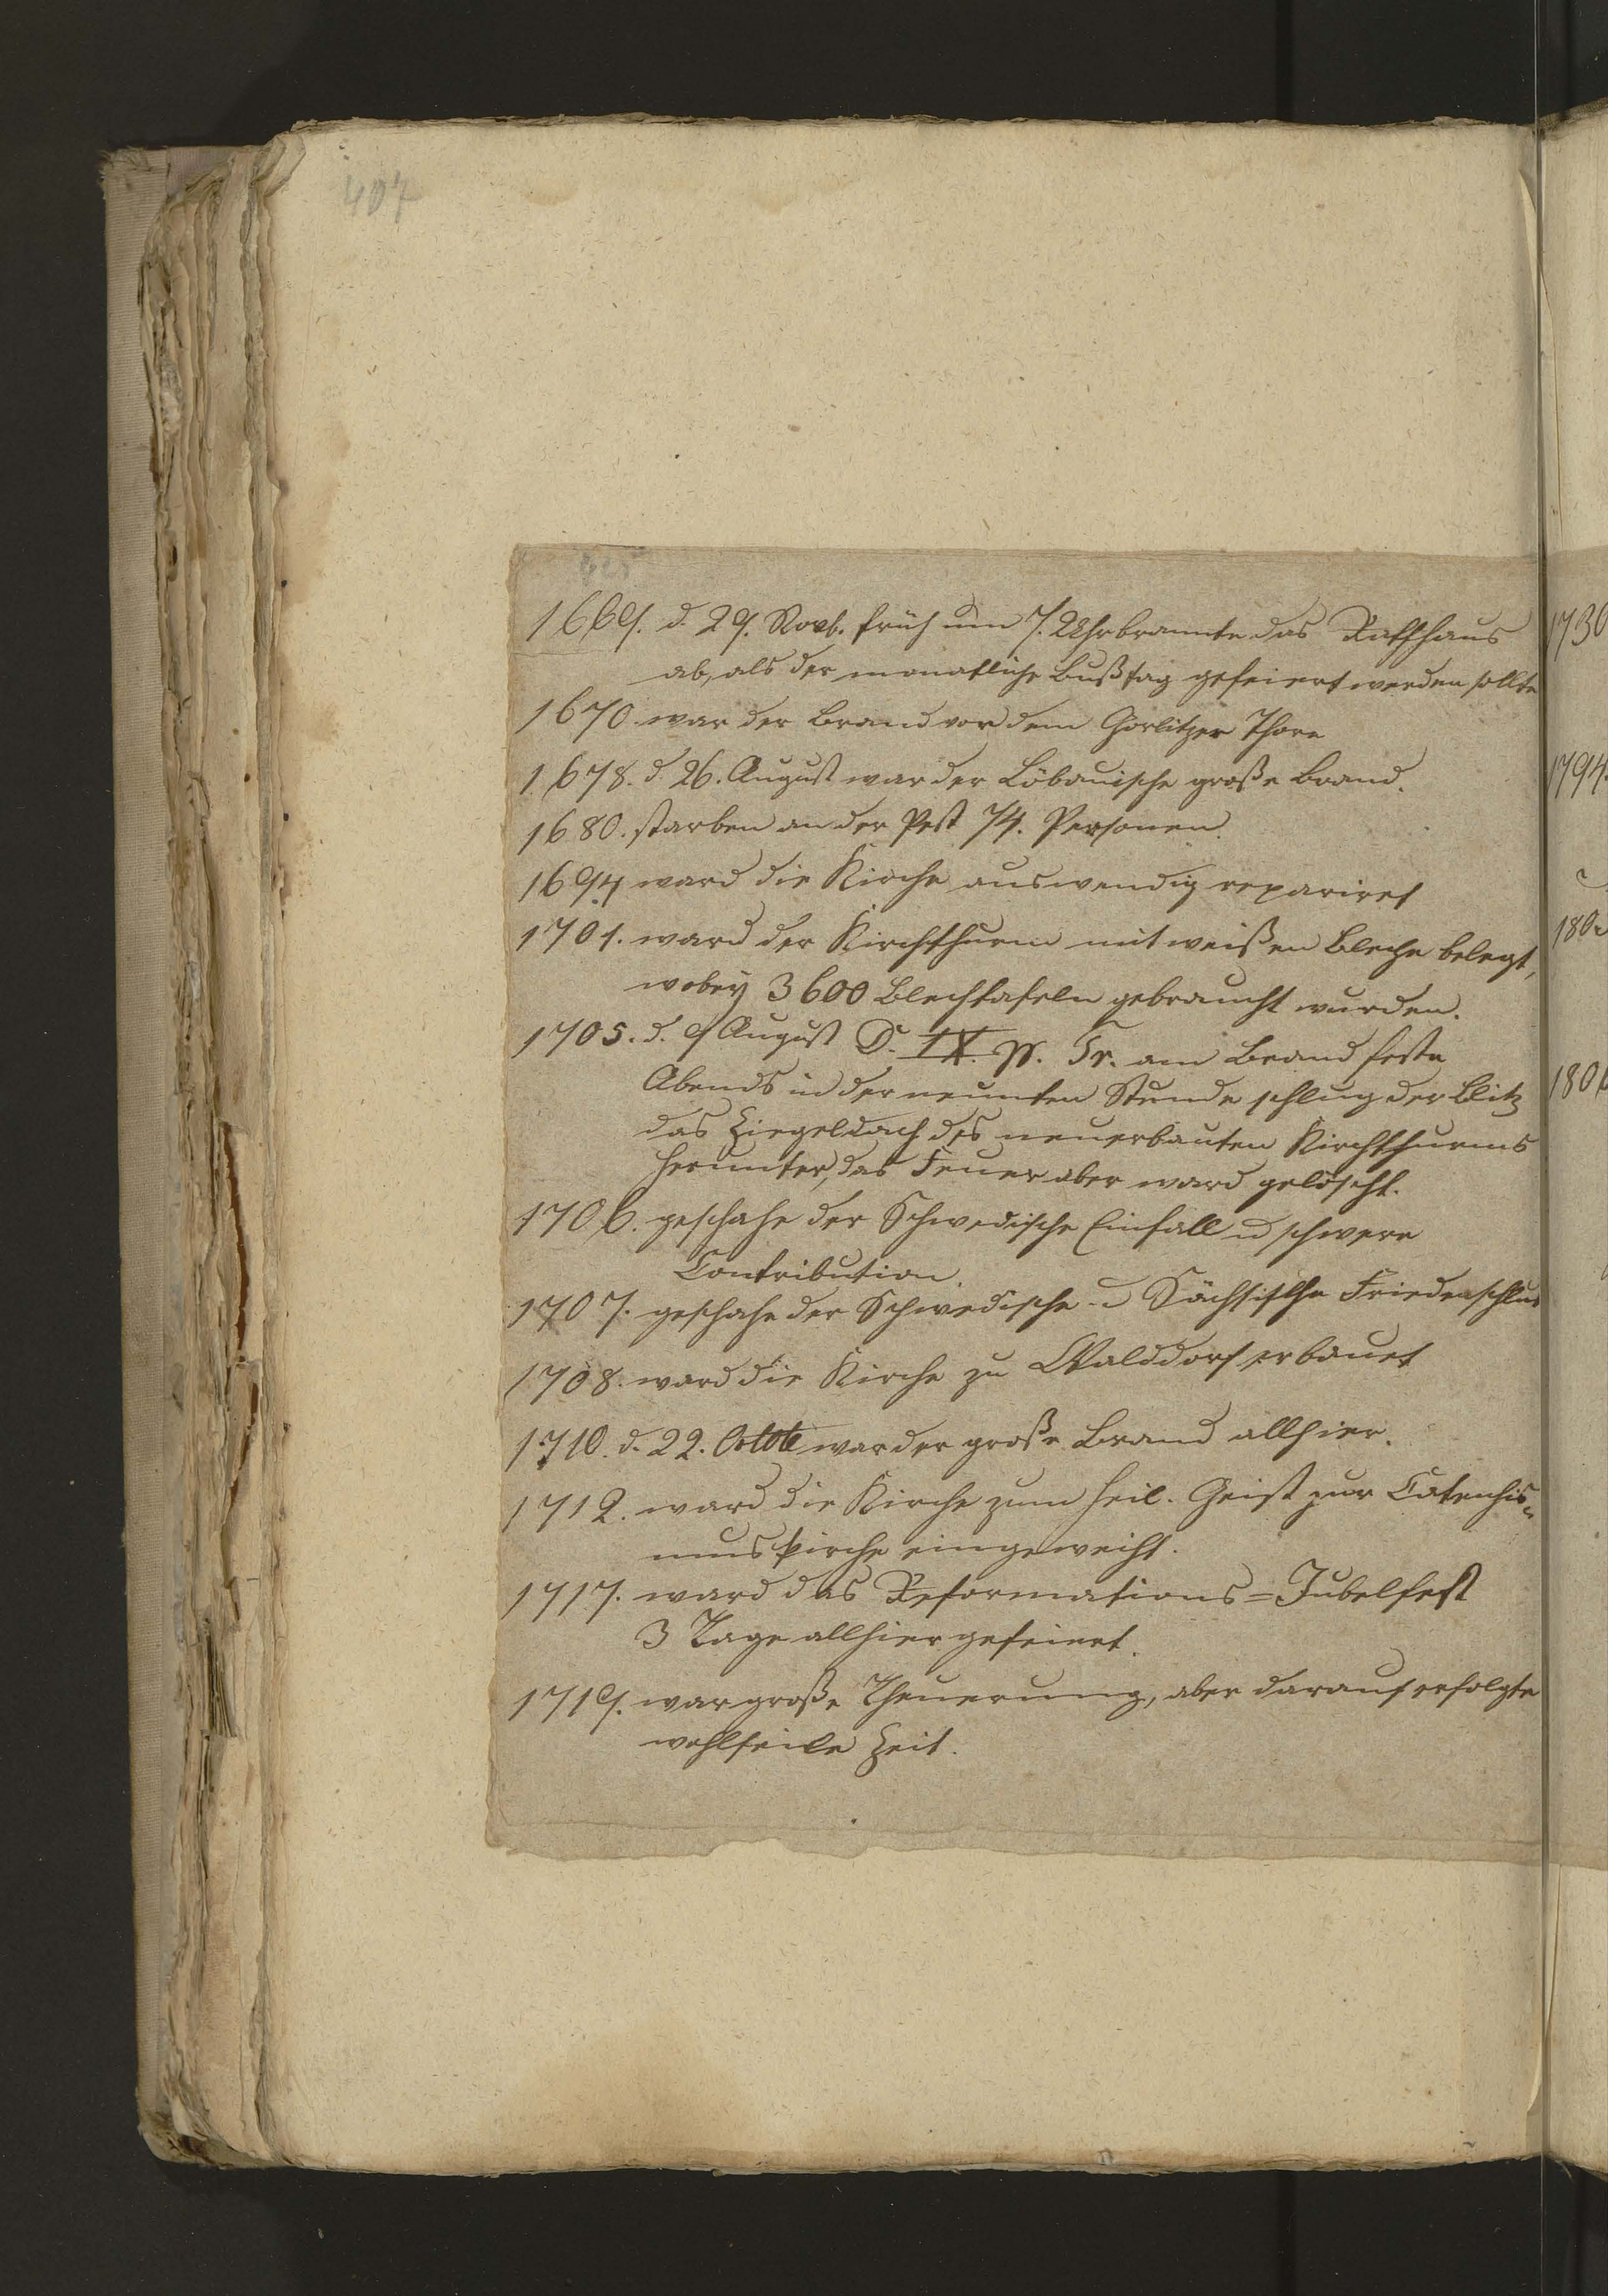 407
1669. d. 29. Novb. früh um 7. Uhr brannte das Rathhaus
ab, als der monatliche Bußtag gefeiert werden sollte
1670. war der Brand vor dem Görlitzer Thore
1678. d. 26. August war der Löbauische große Brand.
1680. starben an der Pest 74. Personen.
1694 ward die Kirche auswendig repariret
1701. ward der Kirchthurm mit weißen Bleche belegt,
wobey 3600 Blechtafeln gebraucht wurden.
1705. d. 9 August D. IX. p. Tr. am Brandfeste
Abends in der neunten Stunde schlug der Blitz
das Ziegeldach des neuerbauten Kirchthurms
herunter, das Feuer aber ward gelöscht.
1706. geschahe der Schwedische Einfall u schwere
Contribution.
1707. geschahe der Schwedische u Sächsische Friedenschlus
1708. ward die Kirche zu Walddorf erbauet
1710. d. 22. Octob war der große Brand allhier.
1712. ward die Kirche zum heil. Geist zur Catechis=
muskirche eingeweiht.
1717. ward das Reformations=Jubelfest
3 Tage allhier gefeiert.
1719. war große Theuerung, aber darauf erfolgte
wohlfeile Zeit.
1730
1794.
180
180